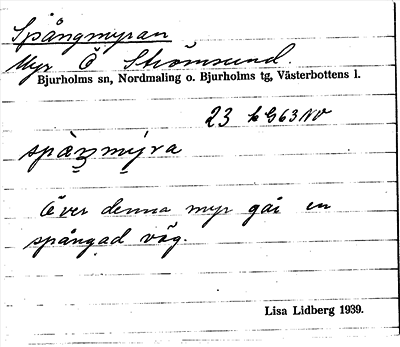 Spångmyran
Myr Ö Strömsund.
Bjurholms sn, Nordmaling o. Bjurholms tg, Västerbottens l.
23 h G63NV
spàŋmýra
Över denna myr går en
spångad väg.
Lisa Lidberg 1939.